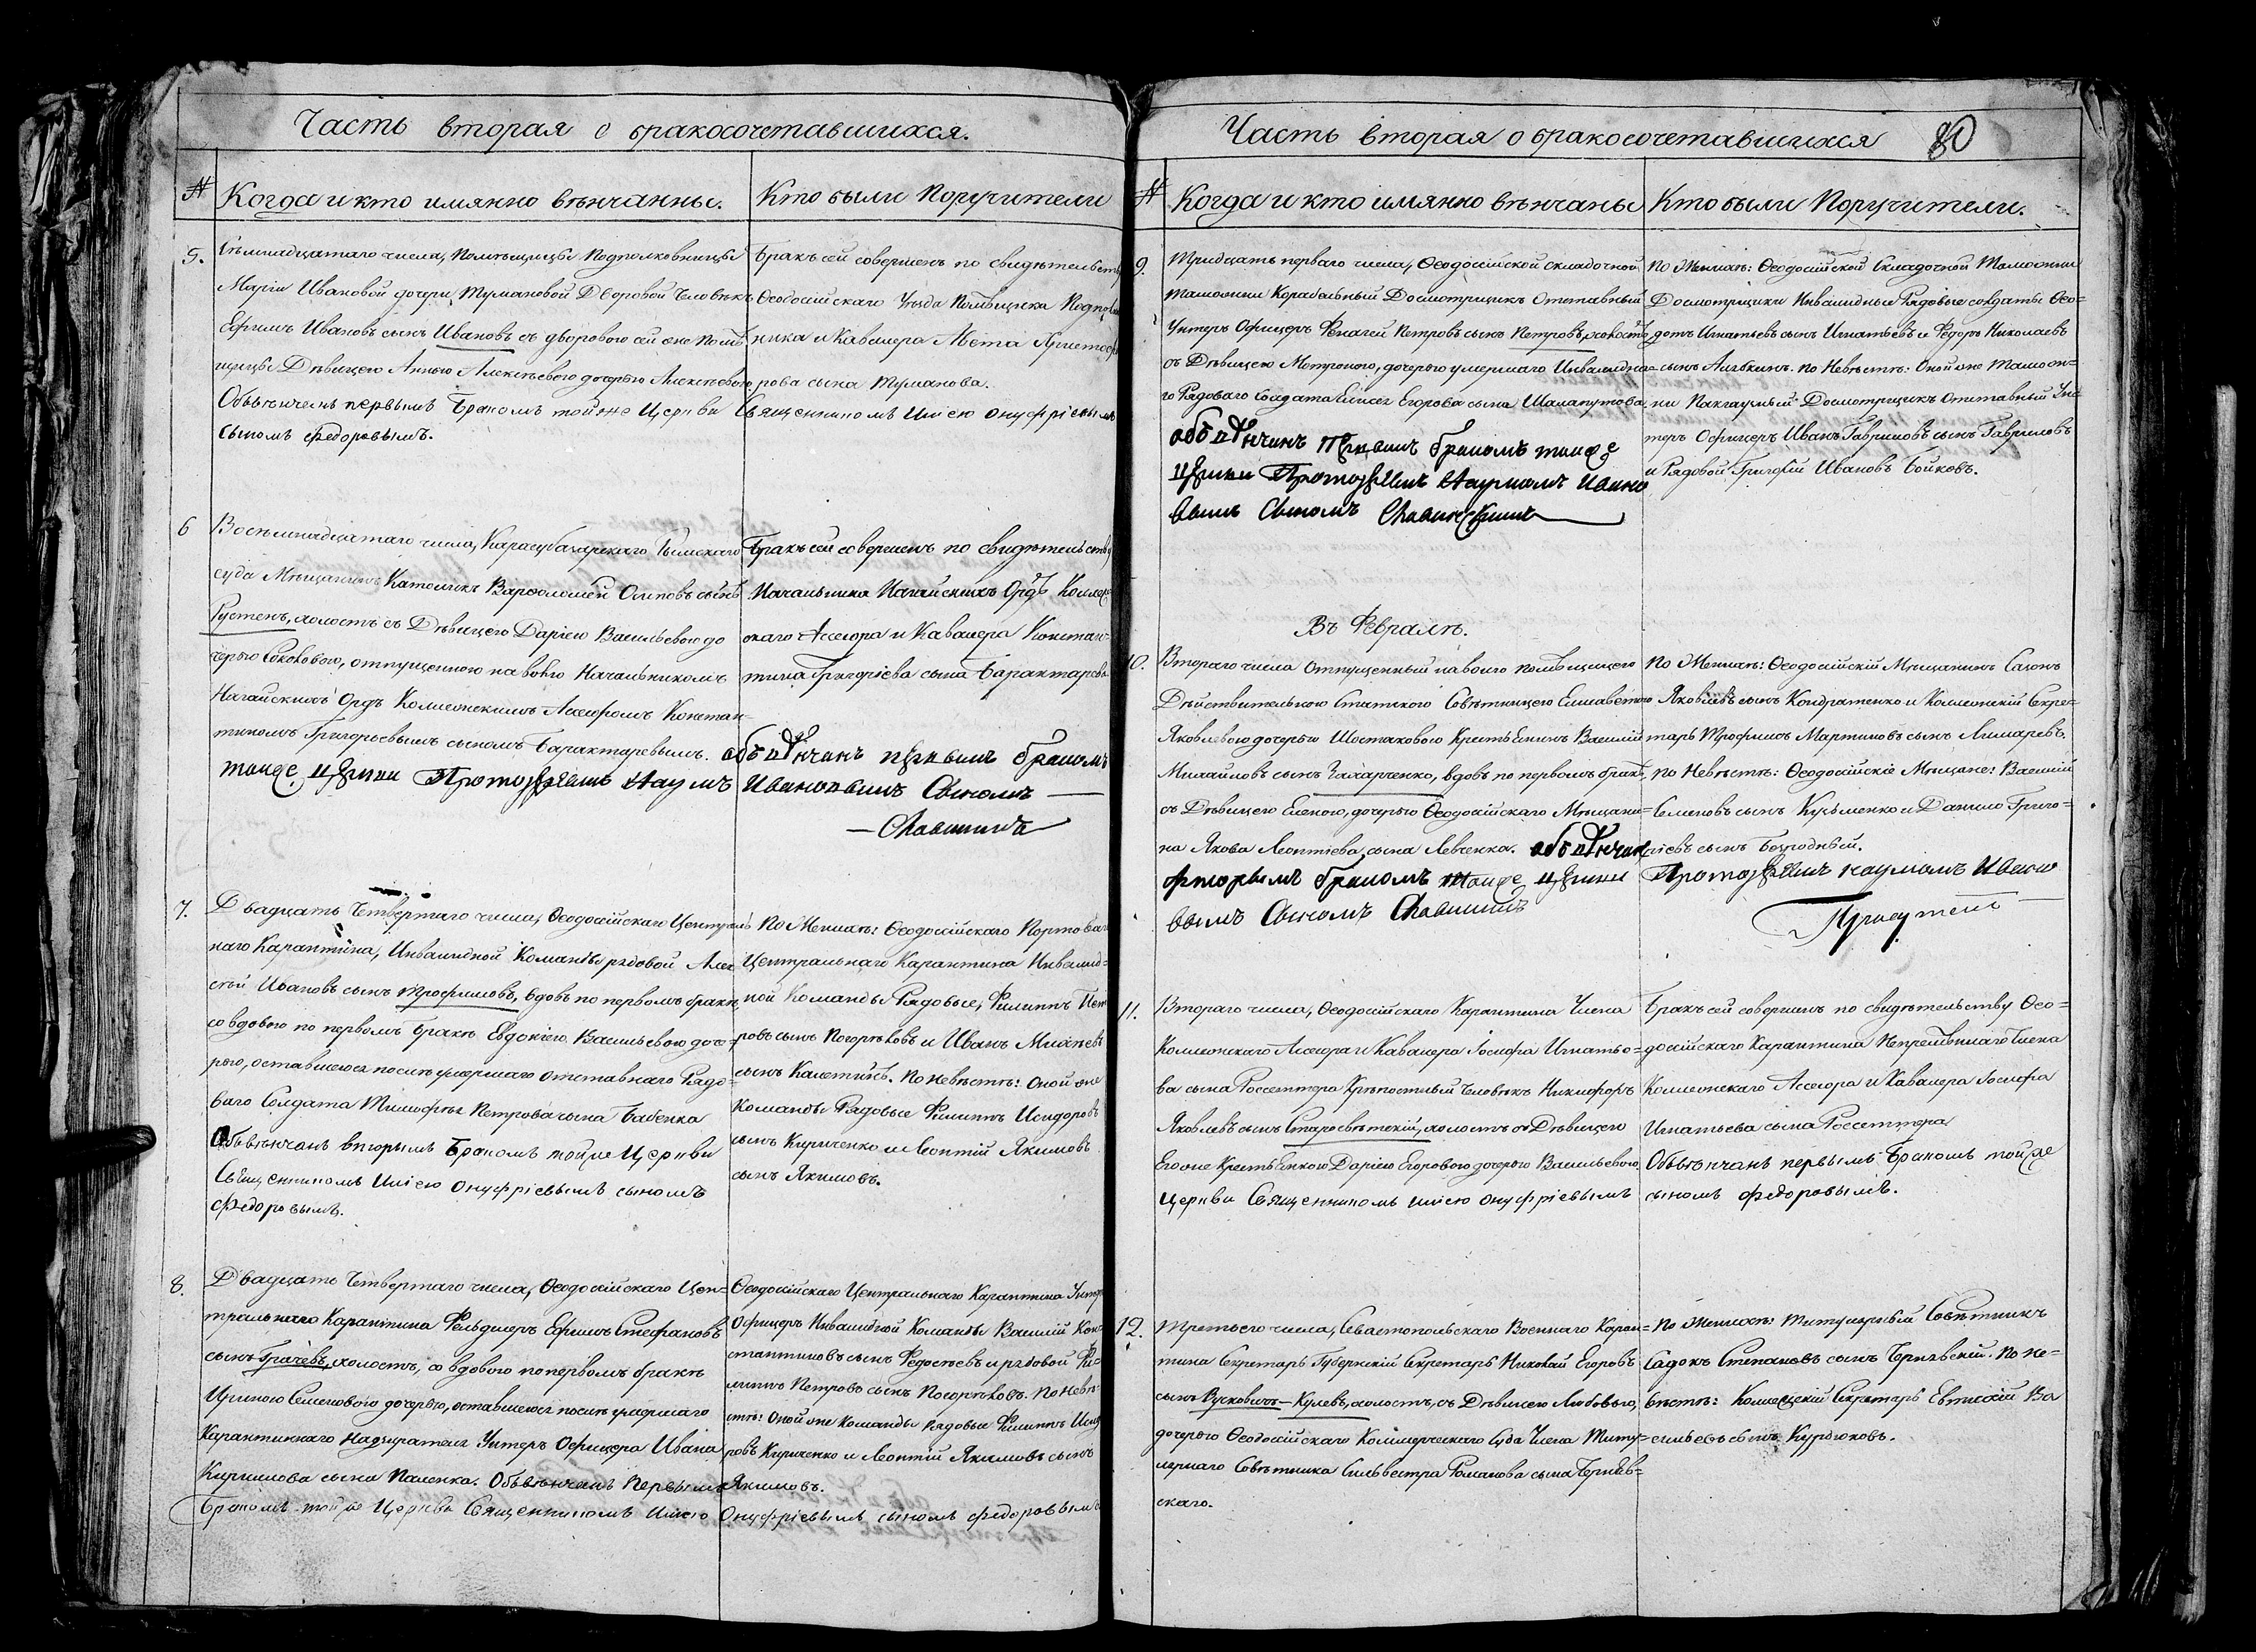 Часть вторая о бракосочетавшихся.
№ Когда и кто имянно вѣнчанны.
Кто были Поручители
5. Семнадцатаго числа, Помѣщицы Подполковницы
Маріи Ивановой дочери Тумановой Дворовой Человѣкъ
Ефимъ Ивановъ сынъ Ивановъ съ дворовою ей же Помѣ
щицы Дѣвицею Анною Алексѣевою дочерью Алексѣевою
Обвѣнченъ первымъ Бракомъ тойже Церкви Священникомъ Иліею Онуфріевымъ
сыномъ Федоровымъ.
Бракъ сей совершенъ по свидѣтельству
Ѳеодосійскаго Уѣзда Помѣщика Подполков
ника и Кавалера
рова сына Туманова.
6 Восемнадцатаго числа, Карасубазарскаго
суда Мѣщанинъ Католикъ Варфоломей Осиповъ сынъ
Рустенъ, холостъ съ Дѣвицею Даріею Васильевою до
черью Соколовою, отпущенною на волю Начальникомъ
Нагайскихъ Ордъ Коллежскимъ Ассесоромъ Констан-
тиномъ Григорьевымъ сыномъ Барактаревымъ. обвѣнчанъ первымъ бракомъ
тойже церкви Протоіереемъ Наумомъ Ивановымъ Сыномъ
Бракъ сей совершенъ по свидѣтельству
Начальника Нагайскихъ Ордъ Коллеж
скаго Ассесора и Кавалера Констан-
тина Григоріева сына Барактарева
7. Двадцать Четвертаго числа, Ѳеодосійскаго Централь
наго Карантина, Инвалидной Команды рядовой Алек
сѣй Ивановъ сынъ Трофимовъ, вдовъ по первомъ бракѣ,
со вдовою по первомъ бракѣ Евдокіею Васильевою доче-
рью, оставшеюся послѣ умершаго отставнаго Рядо-
ваго Солдата Тимофѣя Петрова сына Бабенка
Обвѣнчанъ вторымъ Бракомъ тойже Церкви
Священникомъ Иліею Онуфріевымъ сыномъ
Федоровымъ.
По Женихѣ: Ѳеодосійскаго Портоваго
Центральнаго Карантина Инвалид-
ной Команды Рядовые, Филиппъ Пет
ровъ сынъ Погорѣловъ и Иванъ
сынъ По Невѣстѣ: Оной же
Команды Рядовые Филиппъ Исидоровъ
сынъ Кириченко и Леонтій Якимовъ
сынъ Якимовъ.
8. Двадцать Четвертаго числа, Ѳеодосійскаго Цен-
тральнаго Карантина Фельдшеръ Ефимъ Стефановъ
сынъ Грачевъ, холостъ, со вдовою по первомъ бракѣ
Ириною Семеновою дочерью, оставшеюся послѣ умершаго
Карантиннаго Надзирателя Унтеръ Офицера Ивана
Кирилова сына Паленка. Обвѣнчанъ Первымъ
Бракомъ тойже Церкви Священникомъ Иліею Онуфріевымъ сыномъ Федоровымъ
Ѳеодосійскаго Центральнаго Карантина Унтеръ
Офицеръ Инвалидной Команды Василій Кон-
стантиновъ сынъ Федосѣевъ и рядовой Фи-
липпъ Петровъ сынъ Погорѣловъ. По Невѣ-
стѣ: Оной же Команды Рядовые Филиппъ Исидо
ровъ Кириченко и Леонтій Якимовъ сынъ
Якимовъ.
Часть вторая о бракосочетавшихся 80
№ Когда и кто имянно вѣнчаны
Кто были Поручители.
9. Тридцать перваго числа, Ѳеодосійской складочной
таможни Корабельный Досмотрщикъ Отставный
Унтеръ Офицеръ Петровъ сынъ Петровъ, холостъ
съ Дѣвицею Матроною, дочерью умершаго Инвалидна-
го Рядоваго Солдата Егорова сына Шалапутова
обвѣнчанъ первымъ бракомъ тойже
церкви Протоіереемъ Наумомъ Ивано
вымъ Сыномъ
По Женихѣ: Ѳеодосійской Складочной Таможни
Досмотрщики Инвалидные Рядовые солдаты Ѳео-
дотъ Игнатьевъ сынъ Игнатьевъ и Федоръ Николаевъ
сынъ По Невѣстѣ: Оной же Тамож-
ни Пакгаузный Досмотрщикъ отставный Ун
теръ Офицеръ Иванъ Гавриловъ сынъ Гавриловъ
и Рядовой Григорій Ивановъ Бойковъ.
Въ Февралѣ.
10. Втораго числа Отпущенный на волю помѣщицею
Дѣйствительною Статскою Совѣтницею Елисаветою
Яковлевою дочерью Шостаковою Крестьянинъ Василій
Михайловъ сынъ Захарченко, вдовъ по первомъ бракѣ,
съ Дѣвицею Еленою, дочерью Ѳеодосійскаго Мѣщани-
на Якова Леонтіева сына Левченка. обвѣнчанъ
вторымъ бракомъ тойже церкви Протоіереемъ Наумомъ Ивано
вымъ Сыномъ
По Женихѣ: Ѳеодосійскій Мѣщанинъ
Яковлевъ сынъ Кондратенко и Коллежскій Секре-
тарь Трофимъ Мартиновъ сынъ Лимаревъ.
По Невѣстѣ: Ѳеодосійскіе Мѣщане: Василій
Семеновъ сынъ Кузьменко и Данило Григо-
ріевъ сынъ Безродный.
11. Втораго числа, Ѳеодосійскаго Карантина Члена
Коллежскаго Ассесора и Кавалера Іосифа Игнатье-
ва сына Россеттера Крѣпостный Человѣкъ Никифоръ
Яковлевъ сынъ Старосвѣтскій, холостъ съ Дѣвицею
Его же Крестьянкою Даріею Егоровою дочерью Васильевою,
церкви Священникомъ Иліею Онуфріевымъ сыномъ Федоровымъ.
Бракъ сей совершенъ по свидѣтельству Ѳео-
досійскаго Карантина Непремѣннаго Члена
Коллежскаго Ассесора и Кавалера Іосифа
Игнатьева сына Россеттера
Обвѣнчанъ первымъ Бракомъ тойже
12. Третьего числа, Севастопольскаго Военнаго Каран-
тина Секретарь Губернскій Секретарь Николай Егоровъ
сынъ Русковичъ-Кулевъ, холостъ, съ Дѣвицею Любовью,
дочерью Ѳеодосійскаго Коммерческаго Суда Члена Титу-
лярнаго Совѣтника Сильвестра Романова сына Черняв-
скаго.
По Женихѣ: Титулярный Совѣтникъ
Садокъ Степановъ сынъ Чернявскій. По Не-
вѣстѣ: Коллежскій Секретарь Евтихій Ва
сильевъ сынъ Курдюковъ.